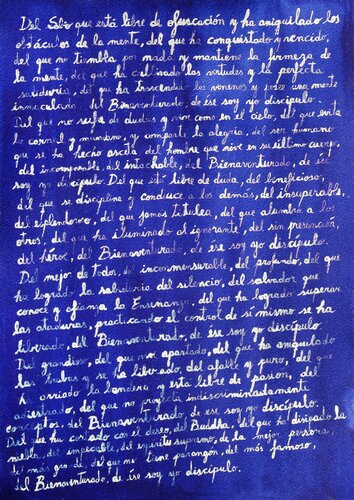 Del Sabio que está libre de ofuscación y ha aniquilado los
obstáculos de la mente, del que ha conquistado y vencido,
del que no tiembla por nada y mantiene la firmeza de
la mente, del que ha cultivado las virtudes y la perfecta
sabiduría, del que ha trascendido los venenos y todo una mente
inmaculada del Bienaventurado, de ése soy yo discípulo.
Del que no se de dudas y vive como en el cielo, del que evita
lo carnal y mundano, y comparte la alegría, del ser humano
que se ha hecho asceta del hombre que vive en su último cuerpo,
del incomparable, del intachable, del Bienaventurado, de ése
soy yo discípulo. Del que está libre de duda, del beneficioso,
del que se disciplina y conduce a los demás, del insuperable,
del esplendoroso, del que jamás titubea, del que alumbra a los
otros, del que ha iluminado al ignorante, del sin presunción,
del héroe, del Bienaventurado, de ése soy yo discípulo.
Del mejor de todos, del inconmensurable, del profundo, del que
ha logrado la sabiduría del silencio, del salvador que
conoce y afianza la Enseñanza, del que ha logrado superar
las ataduras, practicando el control de sí mismo se ha
liberado, del Bienaventurado, de ése soy yo discípulo.
Del grandioso, del que mora apartado, del que ha aniquilado
las trabas y se ha liberado, del afable y puro, del que
ha arriado la bandera y está libre de pasión, del
adiestrado, del que no proyecta indiscriminadamente
conceptos, del Bienaventurado, de ése soy yo discípulo.
Del que ha cortado con el deseo, del Buddha, del que ha disipado la
niebla, del impecable, del espíritu supremo, de la mejor persona,
del más grande, del que no tiene parangón, del más famoso,
del Bienaventurado, de ése soy yo discípulo.